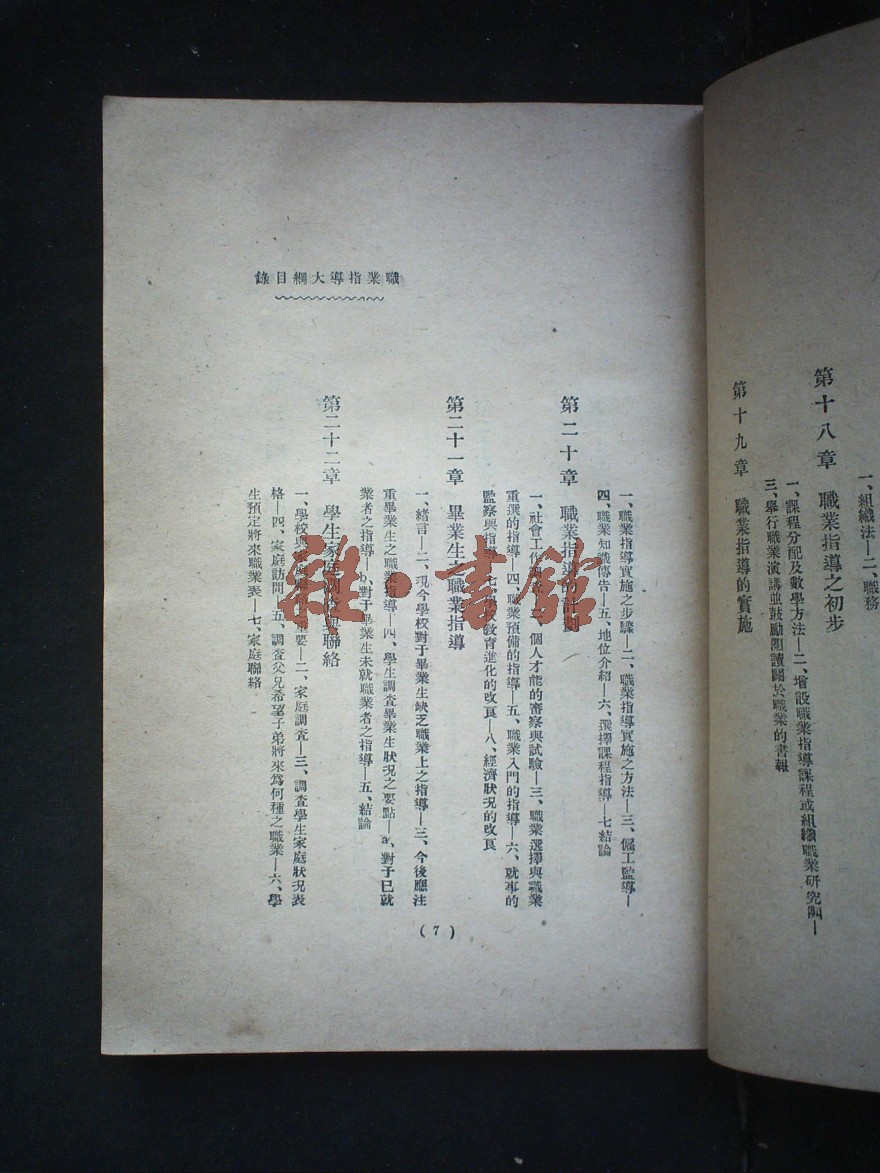 一、組織法—二、職務
第十八章 職業指導之初步
一、課程分配及敎學方法—二、增設職業指導課程或組織職業研究團—
三、舉行職業演講並鼓勵閱讀關於職業的書報
第十九章 職業指導的實施
職業指導大綱目錄
一、職業指導實施之步驟—二、職業指導實施之方法—三、傭工監導—
四、職業知識傳告—五、地位介紹—六、選擇課程指導—七結論
第二十章 職業指導的計劃
一、社會工作 二、個人才能的審察與試驗—三、職業選擇與職業
重選的指導—四、職業預備的指導—五、職業入門的指導—六、就事的
監察與指導—七、學校敎育進化的改良—八、經濟狀况的改良
第二十一章 畢業生之職業指導
一、緒言—二、現今學校對于畢業生缺乏職業上之指導—三、今後應注
重畢業生之職業指導—四、學生調查畢業生狀况之要點—a、對于已就
業者之指導—b、對于畢業生未就職業者之指導—五、結論
第二十二章 學生家庭調查與聯絡
一、學校與家庭 重要—二、家庭調查—三、調查學生家庭狀况表
格—四、家庭訪問—五、調查父兄希望子弟將來爲何種之職業—六、學
生預定將來職業表—七、家庭聯絡
(7)
雜·書館